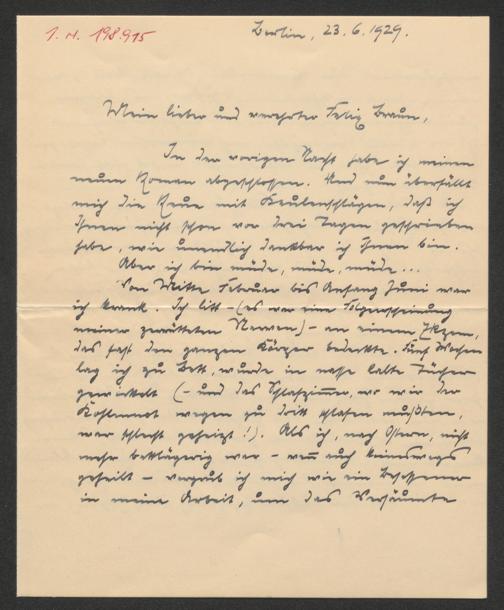 I. N. 198.915
Berlin, 23. 6. 1929.
Mein lieber und verehrter Felix Braun,
In der vorigen Nacht habe ich meinen
neuen Roman abgeschlossen. Und nun überfällt
mich die Reue mit Keulenschlägen, daß ich
Ihnen nicht schon vor drei Tagen geschrieben
habe, wie unendlich dankbar ich Ihnen bin.
Aber ich bin müde, müde, müde ...
Von Mitte Februar bis Anfang Juni war
ich krank. Ich litt – (es war eine Folgeerscheinung
meiner zerrütteten Nerven) – an einem Ekzem,
das fast den ganzen Körper bedeckte. Fünf Wochen
lag ich zu Bett, wurde in nasse kalte Tücher
gewickelt (– und das Schlafzimmer, wo wir der
Kohlennot wegen zu dritt schlafen mußten,
war schlecht geheizt!). Als ich, nach Ostern, nicht
mehr bettlägerig war – wenn auch keineswegs
geheilt – vergrub ich mich wie ein Besessener
in meine Arbeit, um das Versäumte